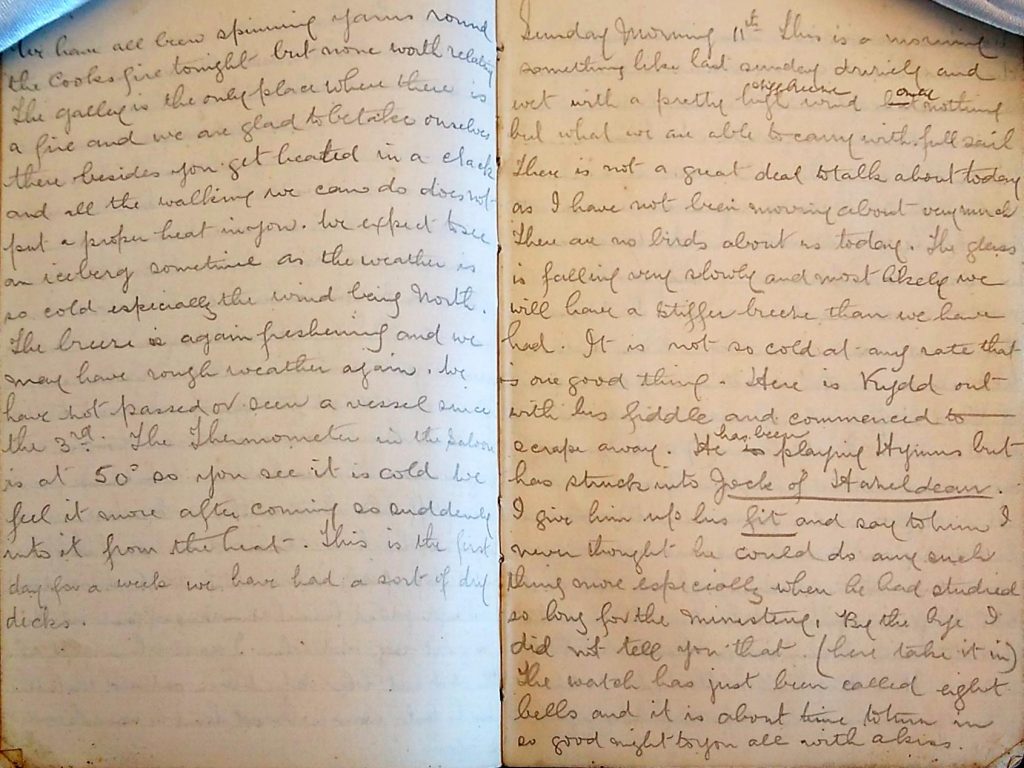 We have all been spinning yarns round
the Cooks fire tonight but none worth relating
The galley is the only place where there is
a fire and we are glad to betake ourselves
there besides you get heated in a clack
and all the walking we can do does not
put a proper heat in you. We expect to see
an iceberg sometime as the weather is
so cold especially the wind being North.
The breeze is again freshening and we
may have rough weather again. We
have not passed or seen a vessel since
the 3rd. The Thermometer in the Saloon
is at 50° so you see it is cold We
feel it more after coming so suddenly
into it from the heat. This is the first
day for a week we have had a sort of dry
decks.
Sunday Morning 11th This is a morning
something like last sunday drizzly and
wet with a pretty high wind but nothing
but what we are able to carry with full sail
There is not a great deal to talk about today
as I have not been moving about very much
There are no birds about us today. The glass
is falling very slowly and most likely we
will have a stiffer breeze than we have
had. It is not so cold at any rate that
is one good thing. Here is Kydd out
with his fiddle and commenced to
scrape away. He has been playing Hymns but
has struck into Jock of Hazeldean.
I give him up his fit and say to him I
never thought he could do any such
thing more especially when he had studied
so long for the ministery. By the bye I
did not tell you that. (here take it in)
The watch has just been called eight
bells and it is about time to turn in
so good night to you all with a kiss.